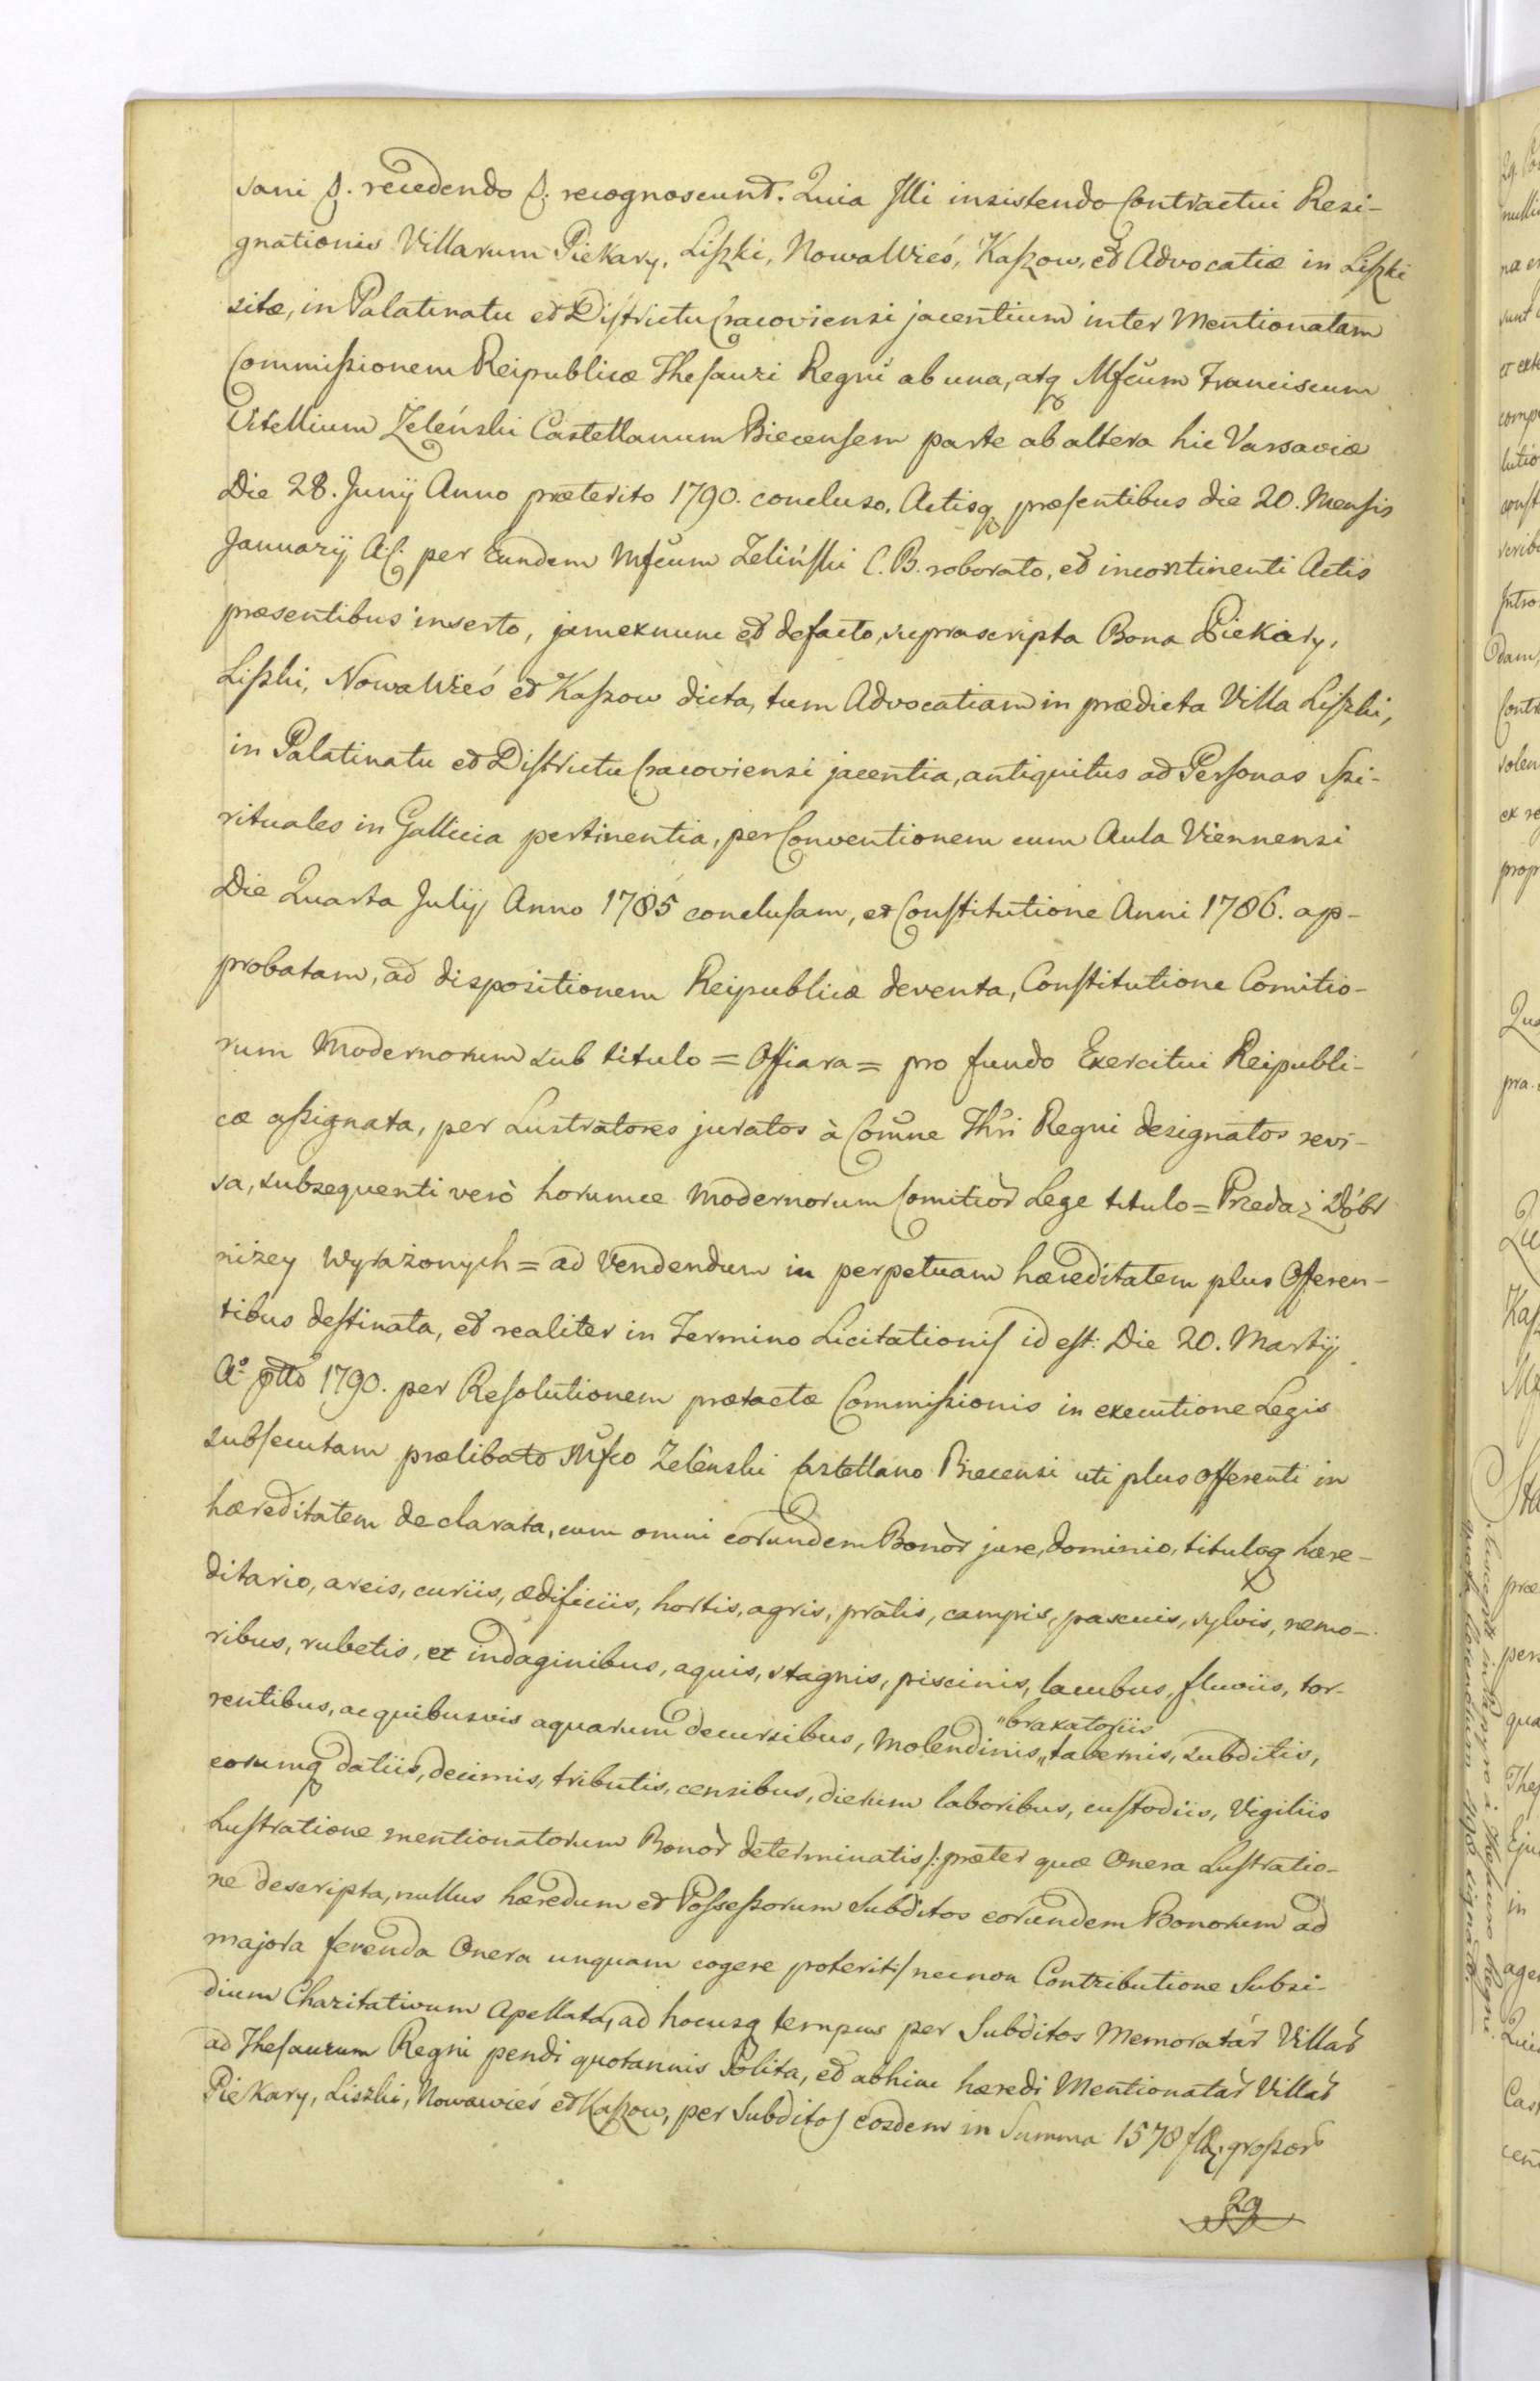 sani &. recedendo &. recognoscunt. Quia Illi insistendo Contractui Resi-
gnationis Villarum Piekary, Liszki, Nowa Wieś, Kaszow, et Advocatiæ in Liszki
sitæ, in Palatinatu et Districtu Cracoviensi jacentium inter Mentionatam
Commissionem Reipublicæ Thesauri Regni ab una, atq Mfcum Franciscum
Vitellium Zeleński Castellanum Biecensem parte ab altera hic Varsaviæ
Die 28. Junij Anno præterito 1790. concluso, Actisq præsentibus die 20. Mensis
Januarij A. C. per Eundem Mfcum Zeliński C. B. roborato, et incontinenti Actis
præsentibus inserto, jamexnunc et defacto, suprascripta Bona Piekary,
Liszki, Nowa Wieś et Kaszow dicta, tum Advocatiam in prædicta Villa Liszki,
in Palatinatu et Districtu Cracoviensi jacentia, antiquitus ad Personas Spi-
rituales in Gallicia pertinentia, per Conventionem cum Aula Viennensi
Die Quarta Julij Anno 1785 conclusam, et Constitutione Anni 1786. ap-
probatam, ad dispositionem Reipublicæ deventa, Constitutione Comitio-
rum Modernorum sub titulo = Offiara = pro fundo Exercitui Reipubli-
cæ assignata, per Lustratores juratos à Comne Thri Regni designatos revi-
sa, subsequenti verò horumce Modernorum Comitior Lege titulo = Przedaż Dóbr
niżey wyrażonych = ad Vendendum in perpetuam hæreditatem plus Offeren-
tibus destinata, et realiter in Termino Licitationis id est: Die 20. Martij
Aº ptto 1790. per Resolutionem prætactæ Commissionis in executione Legis
subsecutam prælibato Mfco Zelenski Castellano Biecensi uti plus offerenti in
hæreditatem declarata, cum omni eorundem Bonor jure, dominio, tituloq hære-
ditario, areis, curiis, ædificiis, hortis, agris, pratis, campis, pascuis, sylvis, nemo-
ribus, rubetis, et indaginibus, aquis, stagnis, piscinis, lacubus, fluviis, tor-
rentibus, ac quibusvis aquarum decursibus, Molendinis, "braxatoriis "tabernis, subditis,
eorumq datiis, decimis, tributis, censibus, dierum laboribus, custodiis, Vigiliis
Lustratione mentionatorum Bonor determinatis /: præter quæ Onera Lustratio-
ne descripta, nullus hæredum et Possessorum Subditos eorundem Bonorum ad
majora ferenda Onera unquam cogere poterit :/ necnon Contributione Subsi-
dium Charitativum Apellata, ad hocusq tempus per Subditos Memoratar Villar
ad Thesaurum Regni pendi quotannis Solita, et abhinc hæredi Mentionatar Villar
Piekary, Liszki, Nowawieś et Kaszow, per Subditos eosdem in Summa 1578 fl. grossor
29